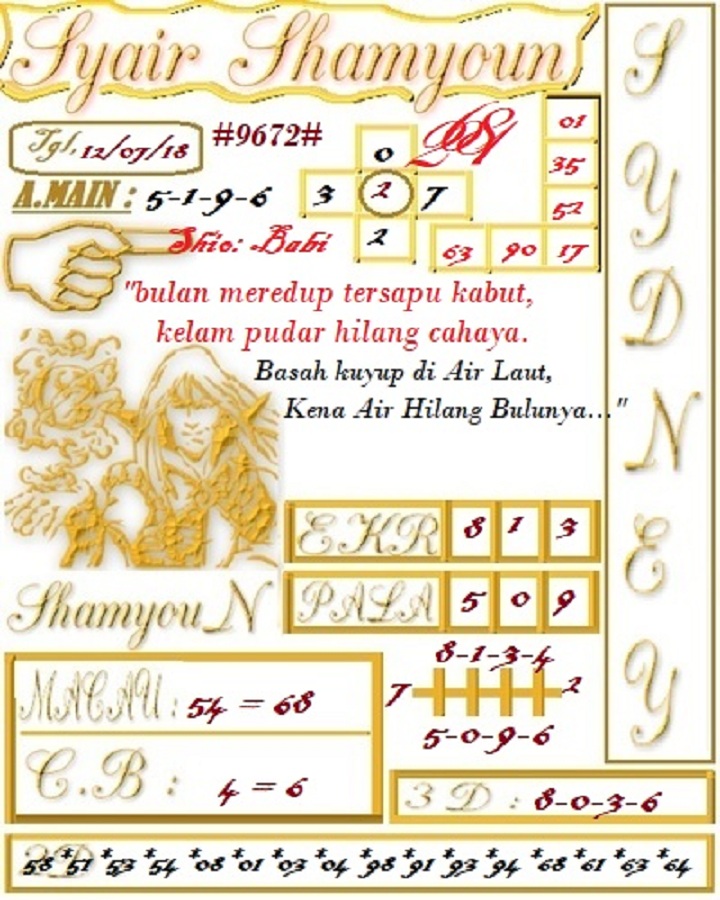 Syair Shamyoun
Tgl, 12/07/18
#9672#
A.MAIN : 5-1-9-6
0
3 2 7
2
01
35
52
63 90 17
Shio: Babi
"bulan meredup tersapu kabut,
kelam pudar hilang cahaya.
Basah kuyup di Air Laut,
Kena Air Hilang Bulunya..."
EKR 8 1 3
ShamyouN
PALA 5 0 9
8-1-3-4
7 2
5-0-9-6
MACAU : 54 = 68
C.B : 4 = 6
3D : 8-0-3-6
58*51*53*54*08*01*03*04*98*91*93*94*68*61*63*64
SYDNEY